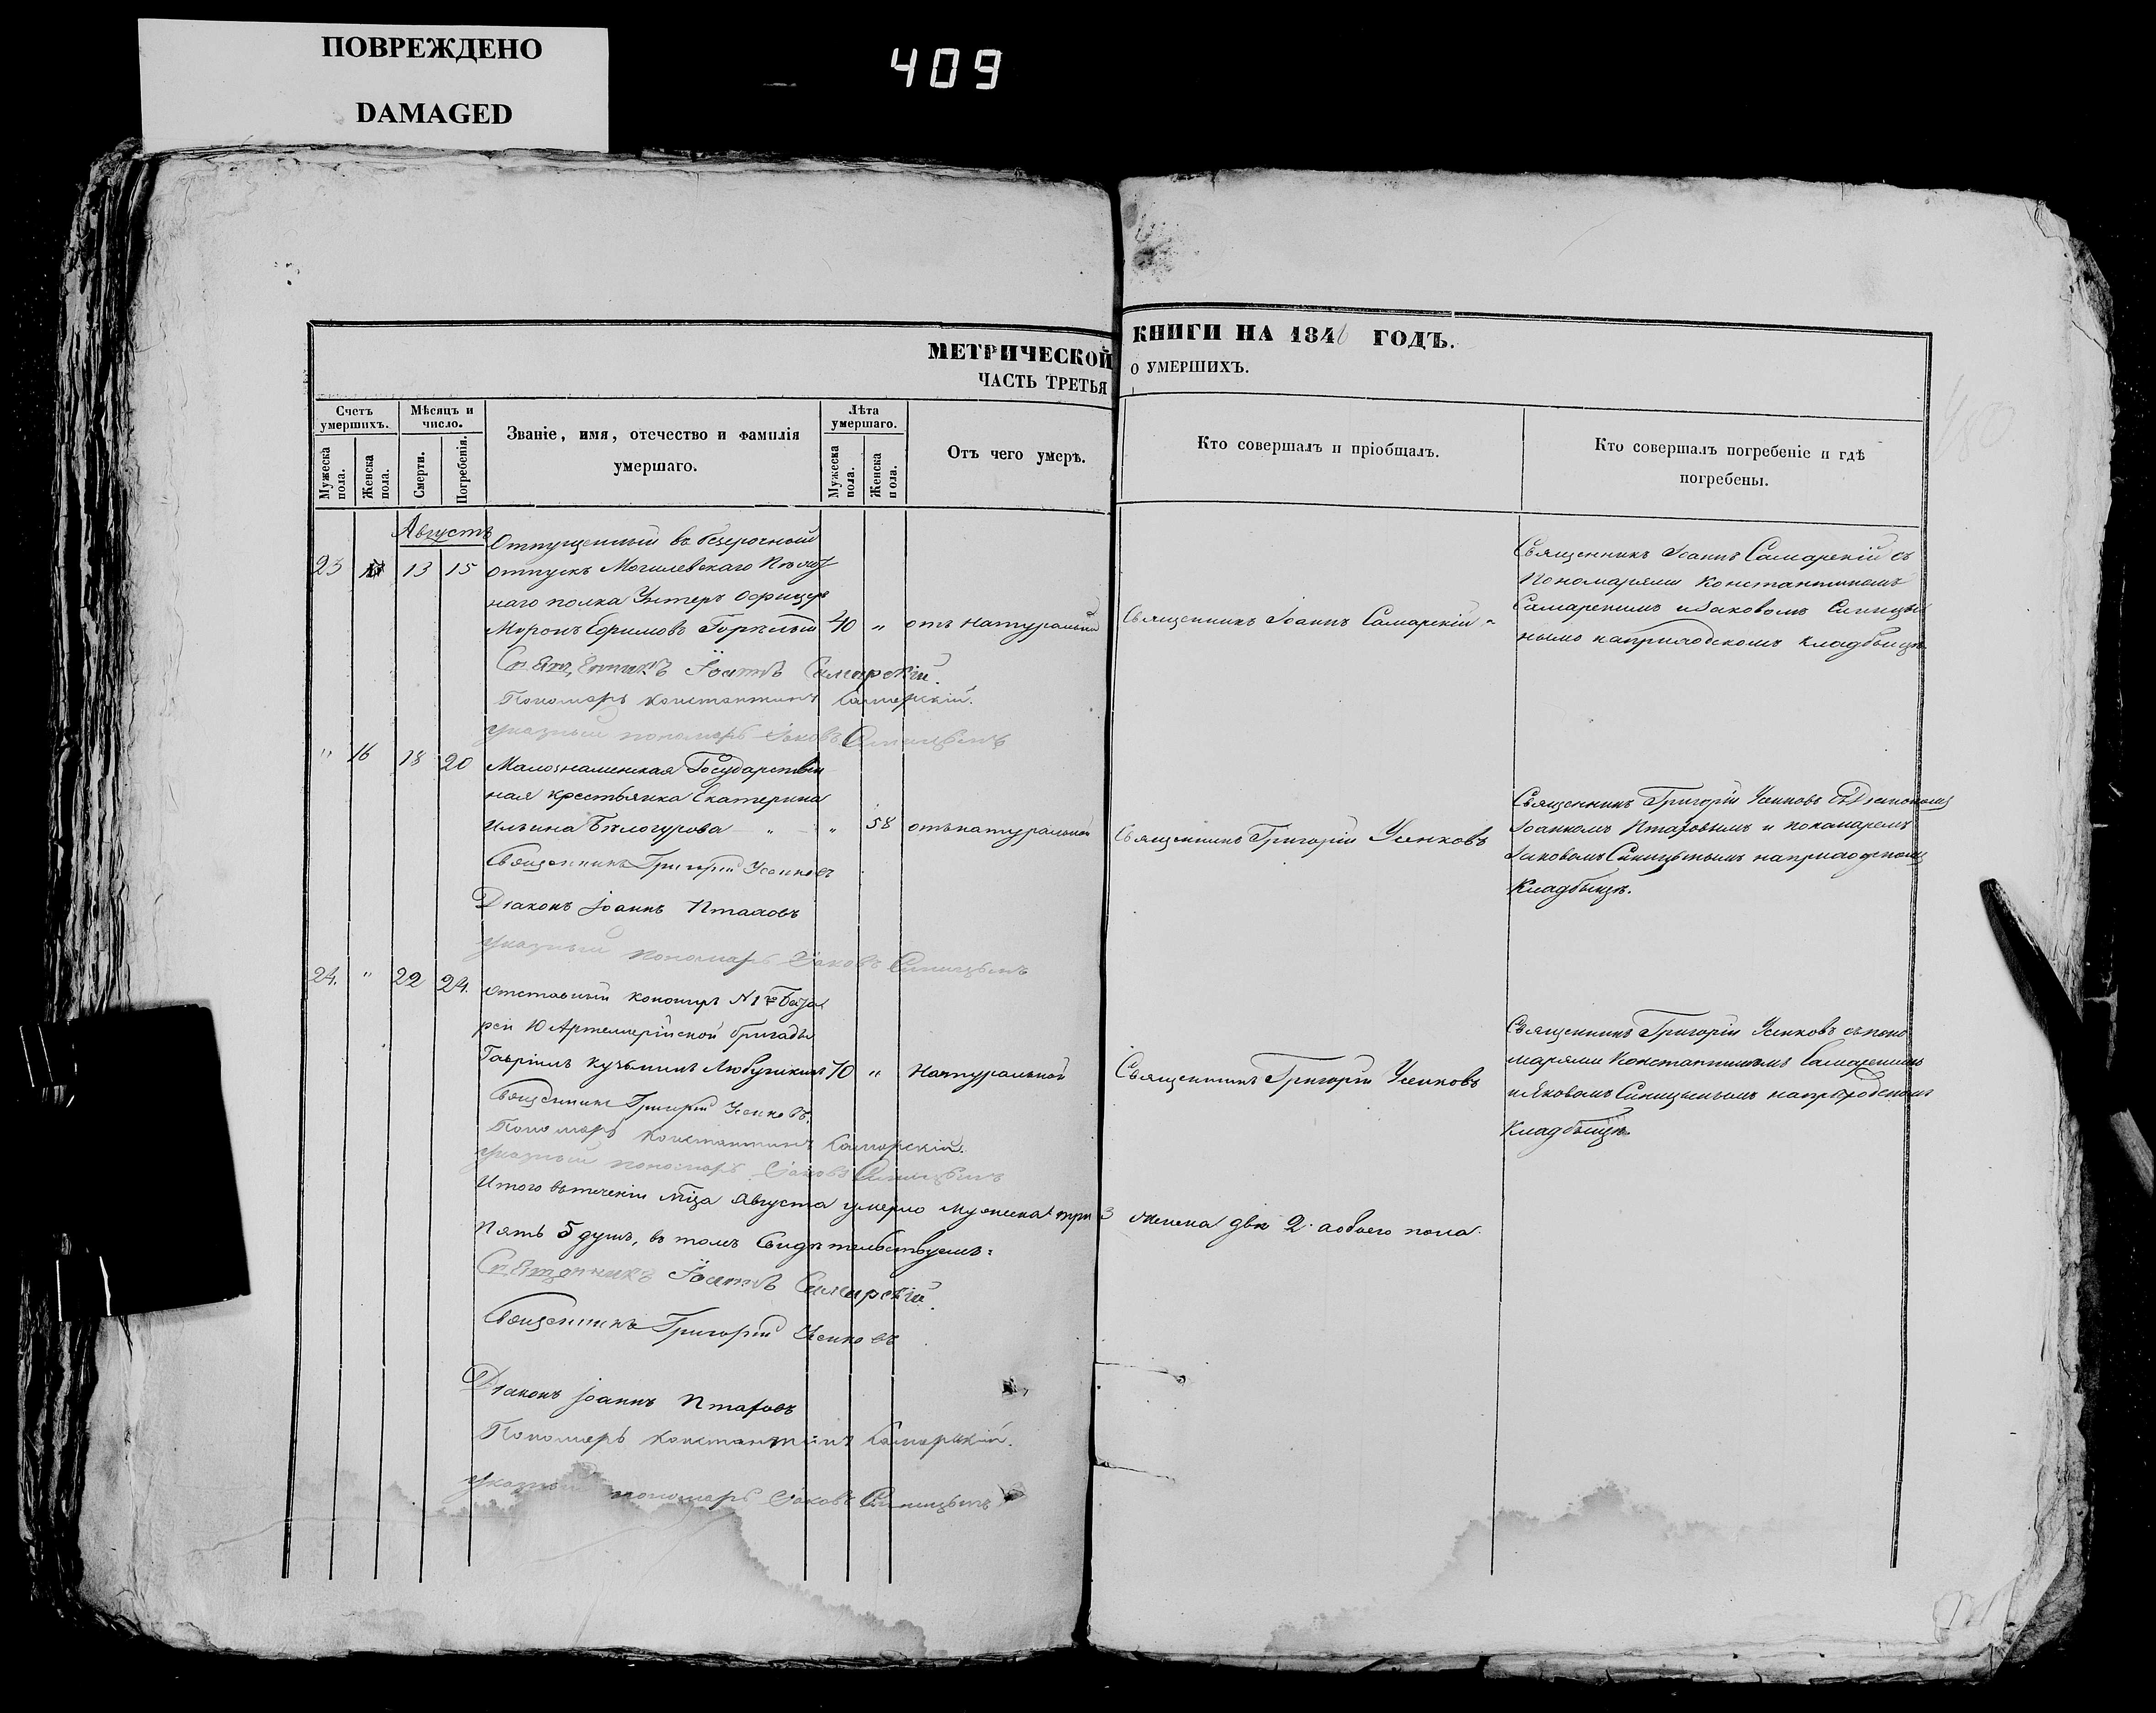 ПОВРЕЖДЕНО
DAMAGED
409
МЕТРИЧЕСКОЙ КНИГИ НА 1846 ГОДЪ.
ЧАСТЬ ТРЕТЬЯ О УМЕРШИХЪ.
Счетъ умершихъ.
Мужеска пола.
Женска пола.
Мѣсяцъ и число.
Смерти.
Погребенія.
Званіе, имя, отечество и фамилія умершаго.
Лѣта умершаго.
Мужеска пола.
Женска пола.
Отъ чего умеръ.
Кто совершалъ и пріобщалъ.
Кто совершалъ погребеніе и гдѣ погребены.
Августъ
23 13 15
Отпущенный въ безсрочный
отпускъ Могилевскаго Пѣхот
наго полка Унтеръ Офицеръ
Миронъ Ефимовъ 40 " отъ натуральной
Священникъ Іоаннъ Самарскій
Священникъ Іоаннъ Самарскій съ
Пономарями Константиномъ
Самарскимъ и Іаковомъ Синицы
нымъ на приходскомъ кладбищѣ
Священникъ Іоаннъ Самарскій.
Пономарь Константинъ Самарскій.
Указный пономарь Іаковъ Синицынъ
" 16 18 20
Малознаменская Государствен
ная крестьянка Екатерина
Ильина Бѣлогурова " " 58 отъ натуральной
Священникъ Григорій Усенковъ
Священникъ Григорій Усенковъ съ Діакономъ
Іоанномъ Птаховымъ и пономаремъ
Іаковомъ Синицынымъ на приходскомъ
Кладбищѣ.
Священникъ Григорій Усенковъ
Діаконъ Іоаннъ Птаховъ
Указный пономарь Іаковъ Синицынъ
24. " 22 24.
Отставный канониръ №1й Бата
реи 10 Артиллерійской бригады
Гавріилъ Кузьминъ 70 " Натуральной
Священникъ Григорій Усенковъ
Священникъ Григорій Усенковъ съ поно
марями Константиномъ Самарскимъ
и Яковомъ Синицынымъ на приходскомъ
Кладбищѣ
Священникъ Григорій Усенковъ.
Пономарь Константинъ Самарскій.
Указный пономарь Іаковъ Синицынъ
Итого въ теченіи мѣца Августа умерло мужеска три 3 женска двѣ 2. а обоего пола
Пять 5 душъ, въ томъ Свидѣтельствуемъ:
Священникъ Іоаннъ Самарскій.
Священникъ Григорій Усенковъ
Діаконъ Іоаннъ Птаховъ
Пономарь Константинъ Самарскій.
Указный пономарь Іаковъ Синицынъ